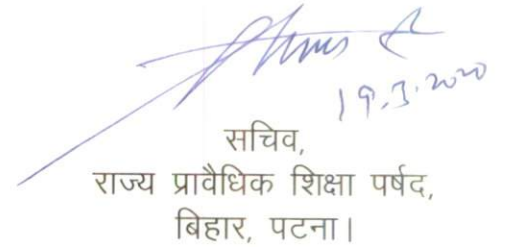 19.3.2020
सचिव,
राज्य प्रावैधिक शिक्षा पर्षद,
बिहार, पटना।